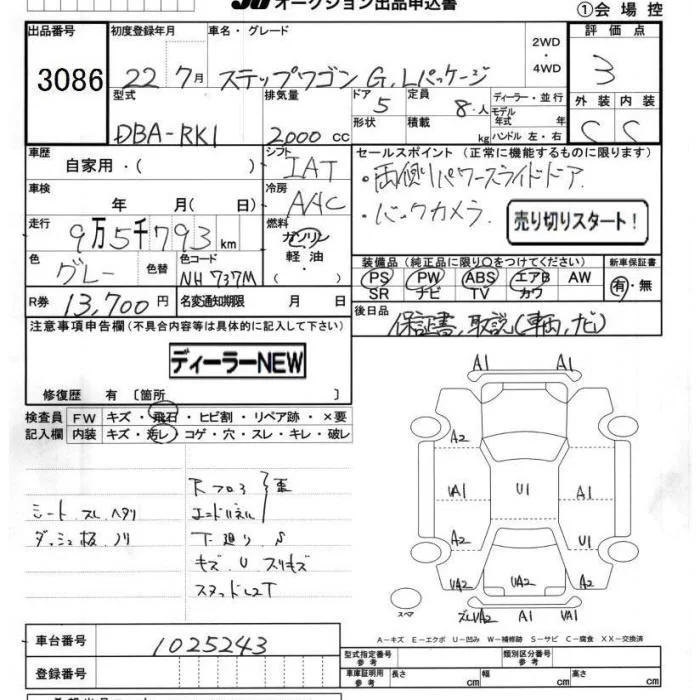 オークション出品申込書
①会場控
出品番号 初度登録年月 車名・グレード 2WD ・ 4WD 評価点
3086 22 7月 ステップワゴン G.Lパッケージ 3
型式 排気量 ドア 5 定員 8・人 ディーラー・並行 外装 内装
DBA-RK1 2000 cc 形状 積載 kg モデル年式 年 ハンドル 左・右 C C
車歴 自家用・( ) シフト IAT
セールスポイント (正常に機能するものに限ります)
・両側パワースライドドア
・バックカメラ
売り切りスタート!
車検 年 月( 日) 冷房 AAC
走行 9万5千793 km 燃料 ガソリン 軽油
色 グレー 色替 色コード NH737M
装備品 (純正品に限り○をつけてください) 新車保証書
PS PW ABS エアB AW 有・無
SR ナビ TV カワ
R券 13,700円 名変通知期限 月 日
後日品 保証書,取説(車両,ナビ)
注意事項申告欄 (不具合内容等は具体的に記入して下さい)
ディーラーNEW
修復歴 有 〔箇所 〕
検査員 FW キズ・飛石・ヒビ割・リペア跡・×要
記入欄 内装 キズ・汚レ・コゲ・穴・スレ・キレ・破レ
シート スレ ヘタリ
ダッシュ板 ノリ
Rフロア
エンドパネル
下廻り S
キズ U スリキズ
A1 A1
A2
UA1 U1 A1
A2 A2
UA2 UA2 UA2
スペア
A1 UA1
A-キズ E-エクボ U-凹み W-補修跡 S-サビ C-腐食 XX-交換済
車台番号 1025243
型式指定番号 参考 類別区分番号 参考
登録番号
車庫証明用 参考 長さ cm 幅 cm 高さ cm